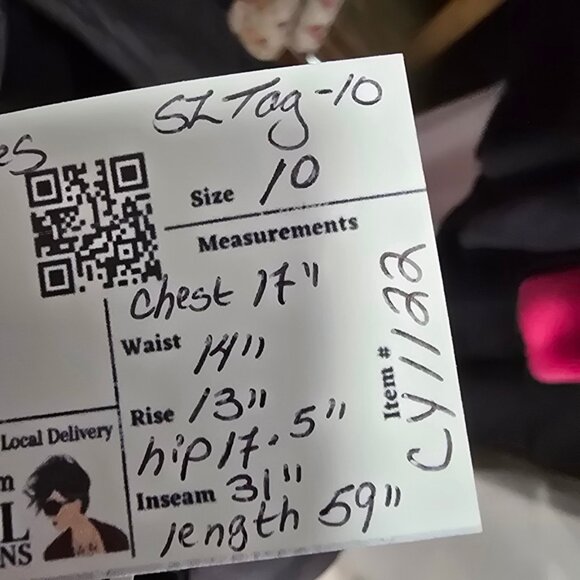 SZ Tag-10
es
Size 10
Measurements
Chest 17"
Waist 14"
Rise 13"
hip 17.5"
Inseam 31"
length 59"
Item # CY1122
Local Delivery
m
L
NS